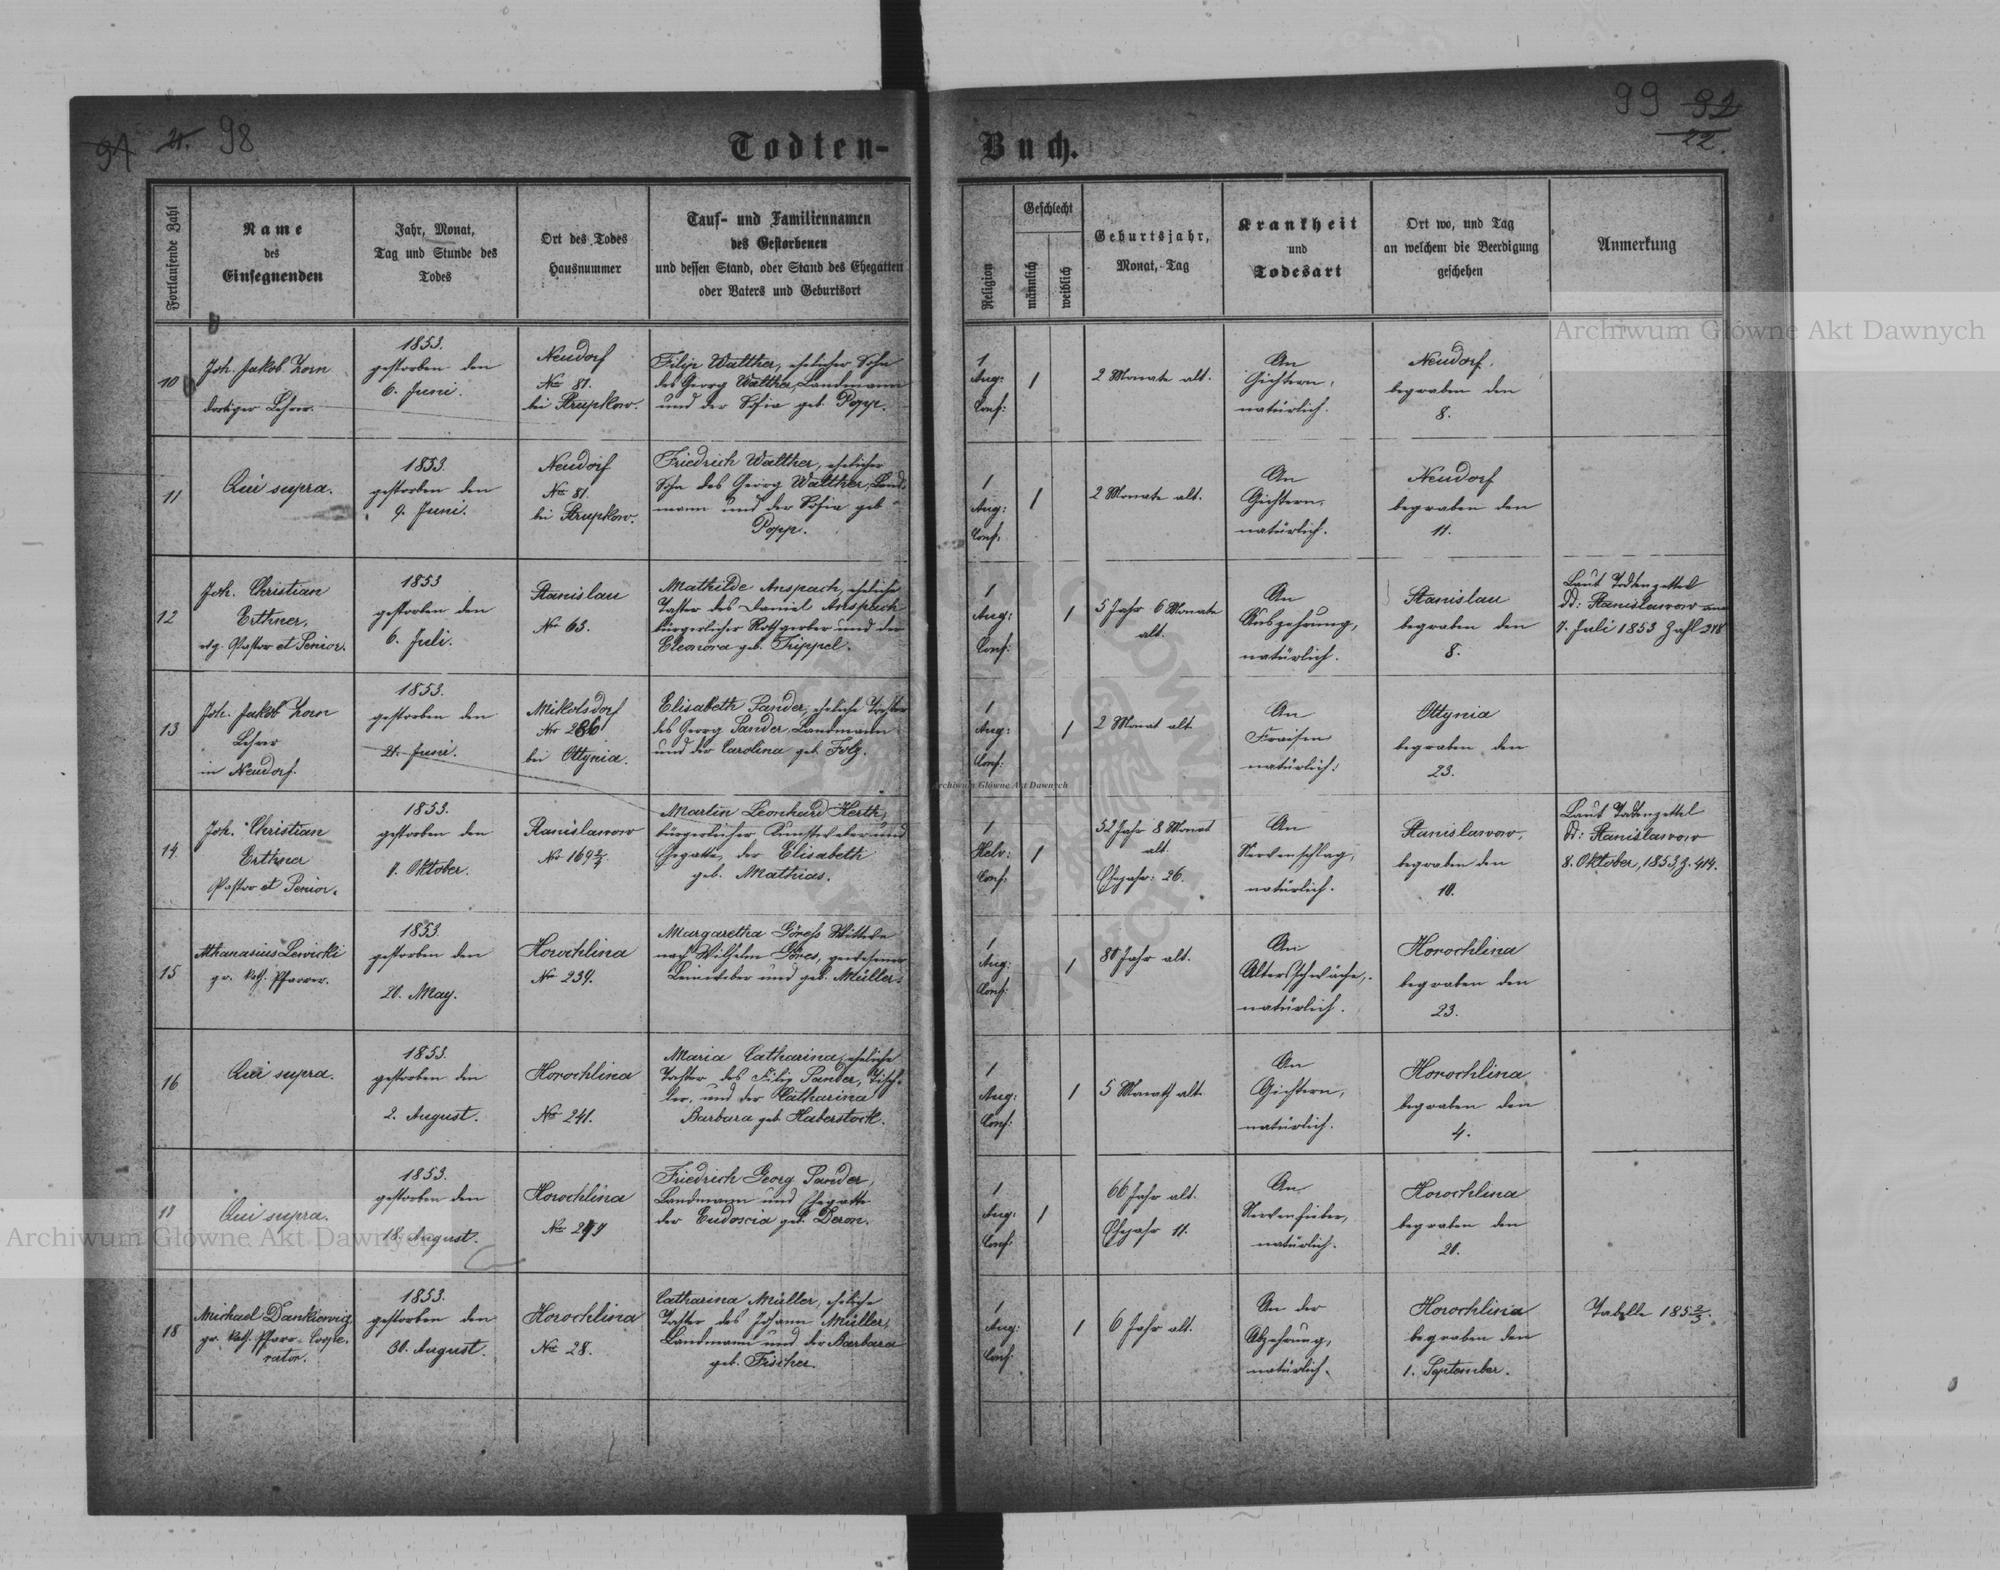 94 21. 98
Todten-
Buch.
99 92
22.
Fortlaufende Zahl
Name
des
Einsegnenden
Jahr, Monat,
Tag und Stunde des
Todes
Ort des Todes
Hausnummer
Tauf- und Familiennamen
des Gestorbenen
und dessen Stand, oder Stand des Ehegatten
oder Vaters und Geburtsort
Religion
Geschlecht
männlich
weiblich
Geburtsjahr,
Monat, Tag
Krankheit
und
Todesart
Ort wo, und Tag
an welchem die Beerdigung
geschehen
Anmerkung
10
Joh. Jakob Zorn
dortiger Lehrer.
1853.
gestorben den
6. Juni.
Neudorf
No 87.
bei Strupkow.
Filip Walther, ehelicher Sohn
des Georg Walther, Landmann
und der Sofia geb. Popp.
1
Aug:
Conf:
1
2 Monate alt.
An
Gichtern,
natürlich.
Neudorf,
begraben den
8.
11
Qui supra.
1853.
gestorben den
9. Juni.
Neudorf
No 87.
bei Strupkow.
Friedrich Walther, ehelicher
Sohn des Georg Walther, Land-
mann und der Sofia geb.
Popp.
1
Aug:
Conf:
1
2 Monate alt.
An
Gichtern,
natürlich.
Neudorf
begraben den
11.
12
Joh. Christian
Erthner,
evg. Pastor et Senior.
1853
gestorben den
6. Juli.
Stanislau
No 63.
Mathilde Anspach, eheliche
Tochter des Daniel Anspach
bürgerlicher Rothgerber und der
Eleonora geb. Trippel.
1
Aug:
Conf:
1
5 Jahr 6 Monate
alt.
An
Auszehrung,
natürlich.
Stanislau
begraben den
8.
Laut Todtenzettel
dd: Stanislawow am
7. Juli 1853 Zahl 318
13
Joh. Jakob Zorn
Lehrer
in Neudorf.
1853.
gestorben den
21. Juni.
Mikolsdorf
No 286
bei Ottynia.
Elisabeth Sander, eheliche Tochter
des Georg Sander, Landmann
und der Carolina geb. Folg.
1
Aug:
Conf:
1
2 Monat alt
An
Fraisen
natürlich.
Ottynia
begraben den
23.
14
Joh. Christian
Erthner
Pastor et Senior.
1853.
gestorben den
7. Oktober.
Stanislawow
No 169 2/4.
Martin Leonhard Herth,
bürgerlicher Kunstweber und
Ehegatte der Elisabeth
geb. Mathias.
1
Helv:
Conf:
1
52 Jahr 8 Monat
alt.
Ehejahr: 26.
An
Nervenschlag,
natürlich.
Stanislawow,
begraben den
10.
Laut Todtenzettel
dd: Stanislawow
8. Oktober, 1853, Z. 414.
15
Athanasius Lewicki
gr. kath. Pfarrer.
1853.
gestorben den
20. May.
Horochlina
No 239.
Margaretha Göress Wittwe
nach Wilhelm Göres, gewesener
Leinweber und geb. Müller.
1
Aug:
Conf:
1
80 Jahr alt.
An
Altersschwäche,
natürlich.
Horochlina
begraben den
23.
16
Qui supra.
1853.
gestorben den
2. August.
Horochlina
No 241.
Maria Catharina, eheliche
Tochter des Filip Sander, Tisch-
ler, und der Catharina
Barbara geb. Haberstock.
1
Aug:
Conf:
1
5 Monath alt.
An
Gichtern,
natürlich.
Horochlina
begraben den
4.
17
Qui supra.
1853.
gestorben den
18. August.
Horochlina
No
Friedrich Georg Sander,
Landmann und Ehegatte
der Eudoscia geb. Deron.
1
Aug:
Conf:
1
66 Jahr alt.
Ehejahr 11.
An
Nervenfieber,
natürlich.
Horochlina
begraben den
20.
18
Michael Dankiewicz
gr. kath. Pfarr-Coope-
rator.
1853.
gestorben den
30. August.
Horochlina
No 28.
Catharina Müller, eheliche
Tochter des Johann Müller,
Landmann und der Barbara
geb. Fischer.
1
Aug:
Conf:
1
6 Jahr alt.
An der
Abzehrung,
natürlich.
Horochlina
begraben den
1. September.
Tabelle 185 2/3.
Archiwum Główne Akt Dawnych
Archiwum Główne Akt Dawnych
Archiwum Główne Akt Dawnych